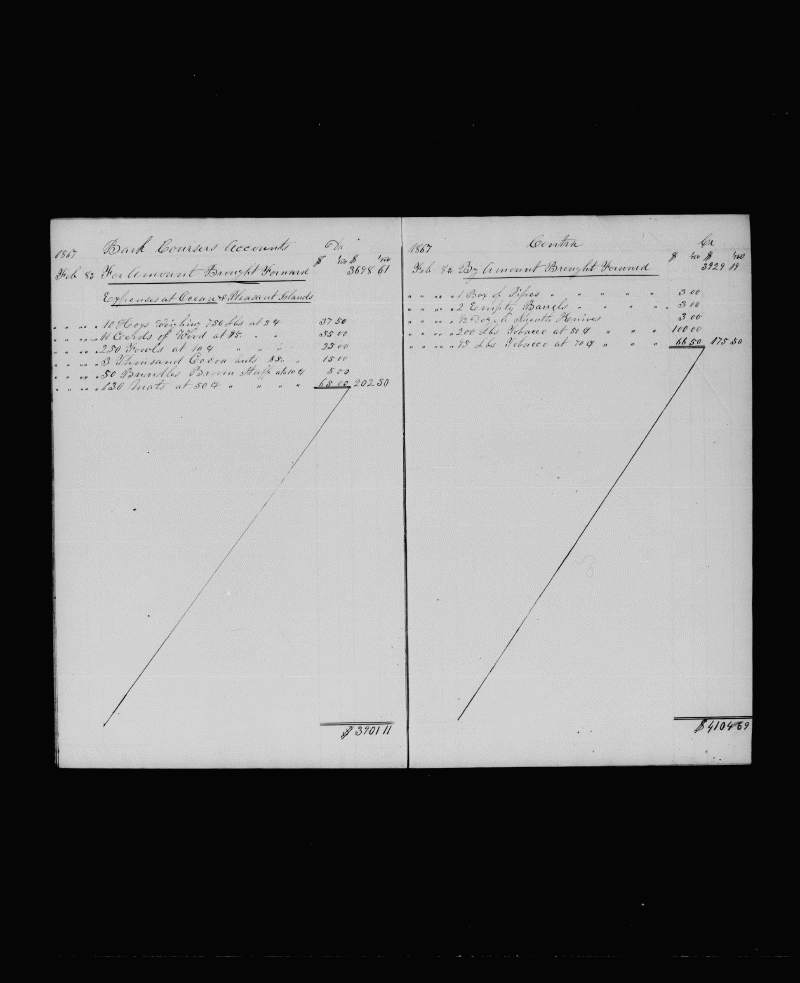 1867 Bark Coursers Accounts Dr
$ $
Feb 82 For Amount Brought Forward 3698 61
Expenses at Ocean & Pleasant Islands
" " " " 10 Hogs Weighing 750 lbs at 5 ¢ 37 50
" " " " 11 Coords of Wood at $5. " " 55 00
" " " " 250 Fowls at 10 ¢ " " " 25 00
" " " " 3 Thousand Cocoa nuts $5. " 15 00
" " " " 50 Bundles Broom Stuff at 10 ¢ 5 00
" " " " 130 Mats at 50 ¢ " " " " 65 00 202 50
$ 3901 11
1867 Contra Cr
$ $
Feb 82 By Amount Brought Forward 3929 19
" " " " 1 Box of Pipes " " " " " 3 00
" " " " 2 Empty Barrels " " " " 3 00
" " " " ½ Dozen Sheath Knives 3 00
" " " " 200 Lbs Tobacco at 50 ¢ " " " 100 00
" " " " 95 Lbs Tobacco at 70 ¢ " " " 66 50 175 50
$ 4104 69